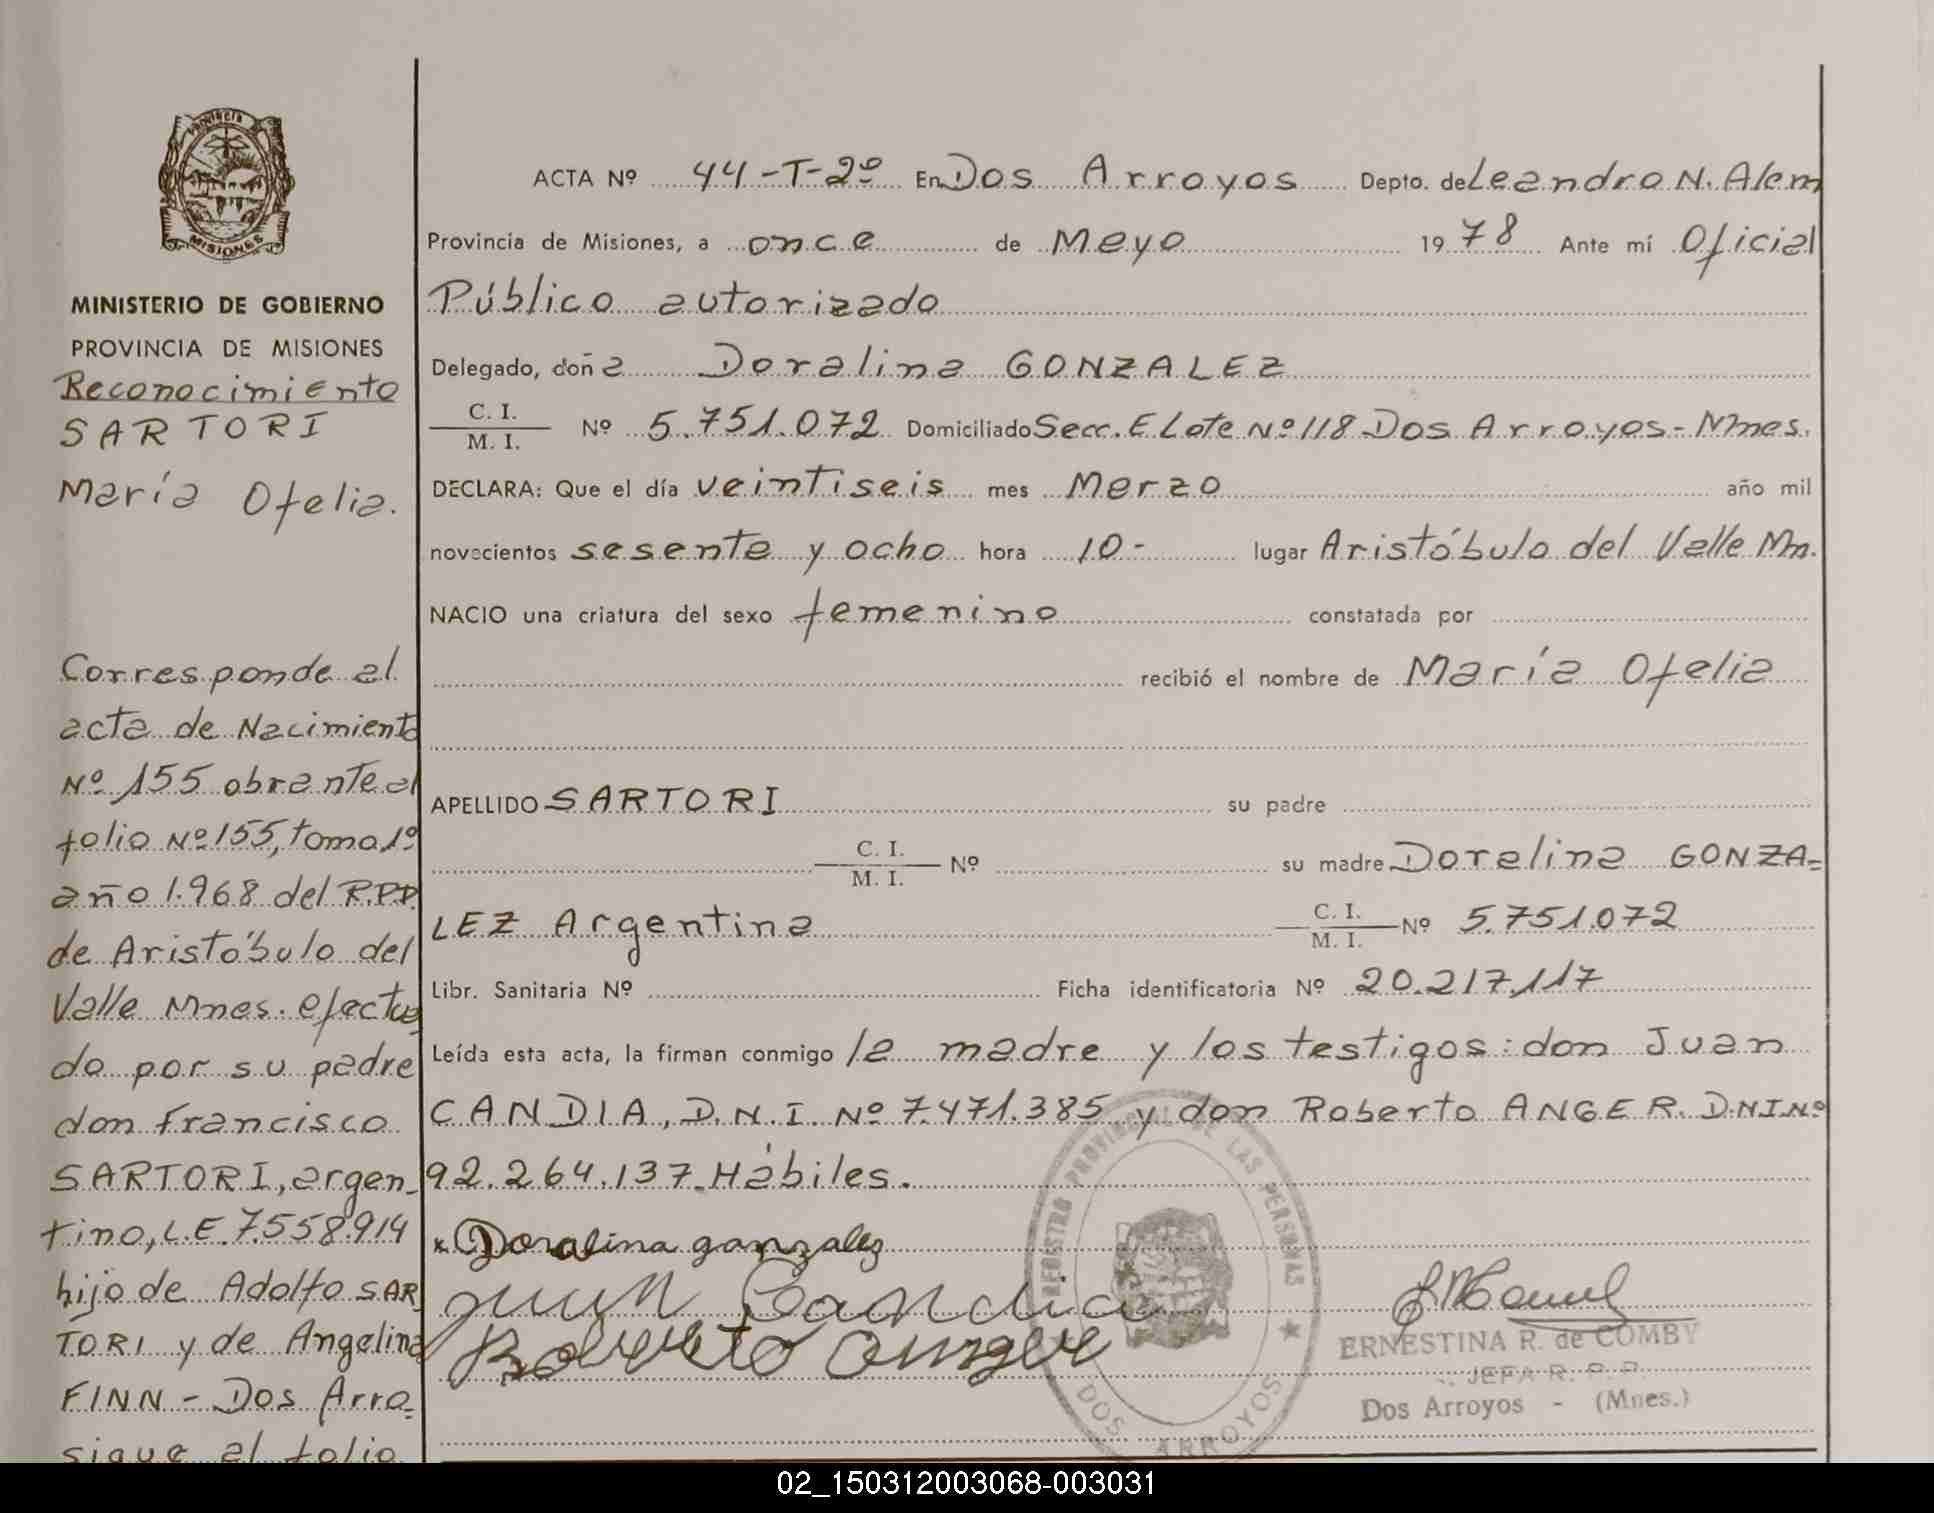 Provincia
MISIONES
MINISTERIO DE GOBIERNO
PROVINCIA DE MISIONES
Reconocimiento
SARTORI
María Ofelia.
Corresponde al
acta de Nacimiento
Nº 155 obrante al
folio Nº 155, tomo 1º
año 1.968 del R.P.P.
de Aristóbulo del
Valle Mnes. efectua
do por su padre
don Francisco
SARTORI, argen-
tino, L.E. 7.558.914
hijo de Adolfo SAR
TORI y de Angelina
FINN - Dos Arro-
sigue al folio
ACTA Nº 44-T-2º En Dos Arroyos Depto. de Leandro N. Alem
Provincia de Misiones, a once de Mayo 1978 Ante mí Oficial
Público autorizado
Delegado, doña Doralina GONZALEZ
C. I.
M. I. Nº 5.751.072 Domiciliado Secc. E Lote Nº 118 Dos Arroyos - Mnes.
DECLARA: Que el día veintiseis mes Marzo año mil
novecientos sesenta y ocho hora 10- lugar Aristóbulo del Valle Mn.
NACIO una criatura del sexo femenino constatada por
recibió el nombre de María Ofelia
APELLIDO SARTORI su padre
C. I.
M. I. Nº su madre Doralina GONZA-
LEZ Argentina C. I.
M. I. Nº 5.751.072
Libr. Sanitaria Nº Ficha identificatoria Nº 20.217.117
Leída esta acta, la firman conmigo la madre y los testigos: don Juan
CANDIA, D.N.I. Nº 7.471.385 y don Roberto ANGER D.N.I.Nº
92.264.137. Hábiles.
x Doralina gonzalez
Juan Candia
Roberto Anger
REGISTRO PROVINCIAL DE LAS PERSONAS
DOS ARROYOS
ERNESTINA R. de COMBY
JEFA R. P. P.
Dos Arroyos - (Mnes.)
02_150312003068-003031